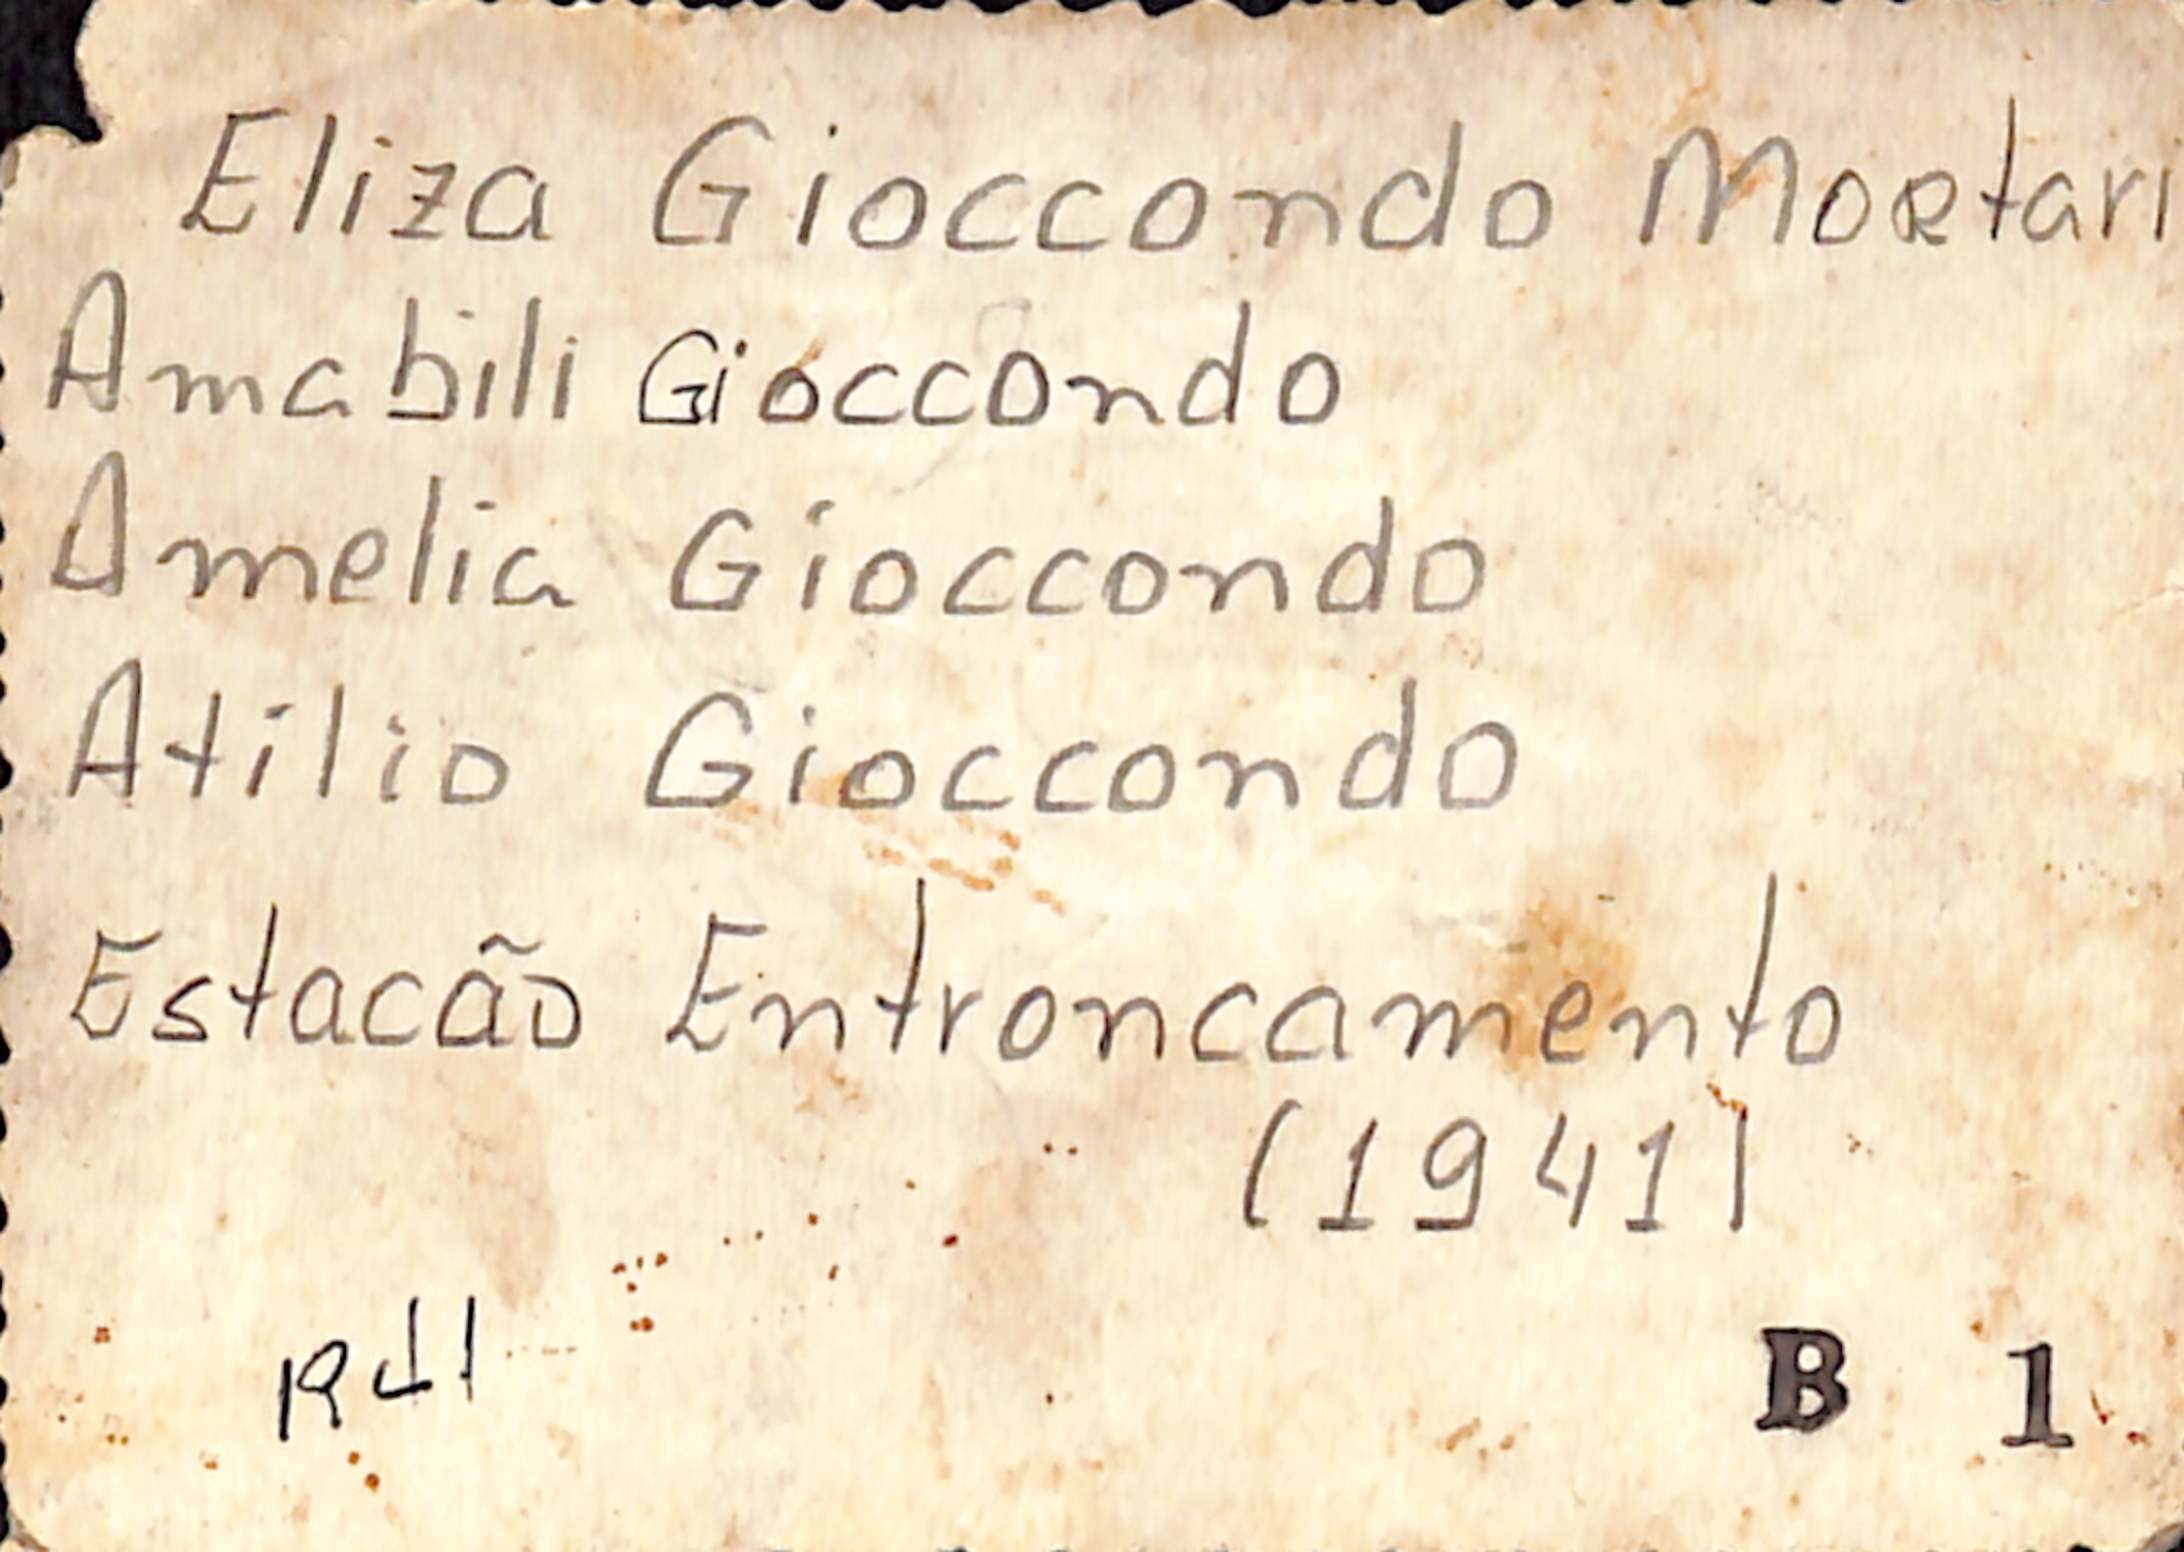 Eliza Gioccondo Mortari
Amabili Gioccondo
Amelia Gioccondo
Atílio Gioccondo
Estacão Entroncamento
(1941)
B 1